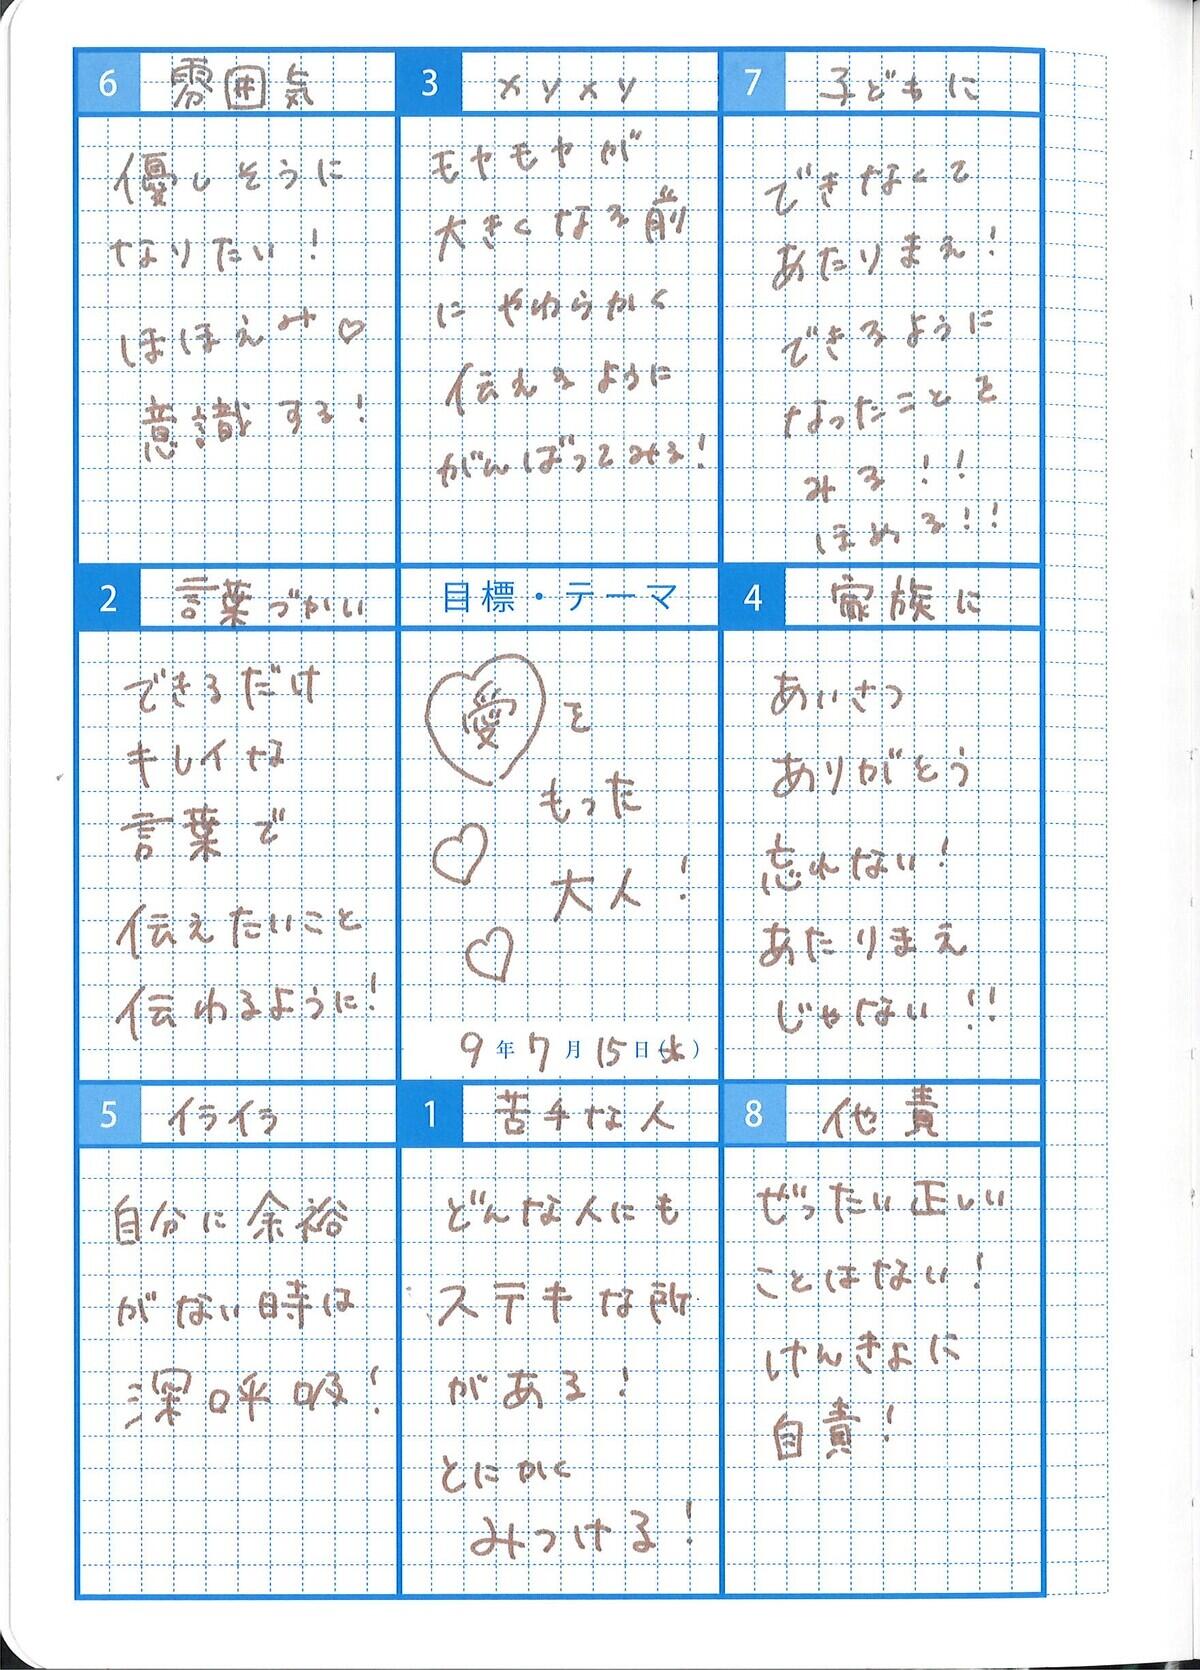 6 雰囲気
優しそうに
なりたい！
ほほえみ♡
意識する！
3 メソメソ
モヤモヤが
大きくなる前
に やわらかく
伝えるように
がんばってみる！
7 子どもに
できなくて
あたりまえ！
できるように
なったことを
みる！！
ほめる！！
2 言葉づかい
できるだけ
キレイな
言葉で
伝えたいこと
伝わるように！
目標・テーマ
愛を
もった
大人！
9年7月15日(水)
4 家族に
あいさつ
ありがとう
忘れない！
あたりまえ
じゃない！！
5 イライラ
自分に余裕
がない時は
深呼吸！
1 苦手な人
どんな人にも
ステキな所
がある！
とにかく
みつける！
8 他責
ぜったい正しい
ことはない！
けんきょに
自責！